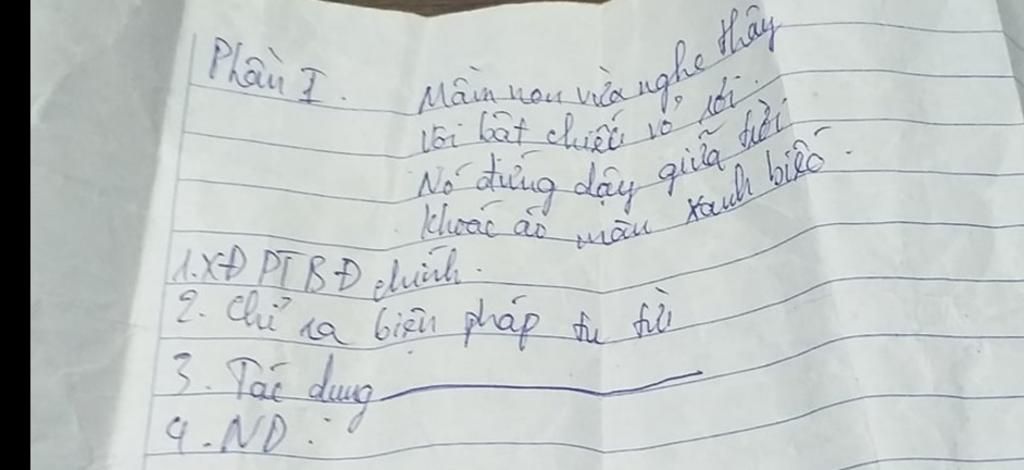 Phần I. Mầm non vừa nghe thấy
Vội bật chiếc vỏ rơi.
Nó đứng dậy giữa trời
Khoác áo màu xanh biếc.
1. XĐ PTBĐ chính.
2. Chỉ ra biện pháp tu từ
3. Tác dung
4. ND: